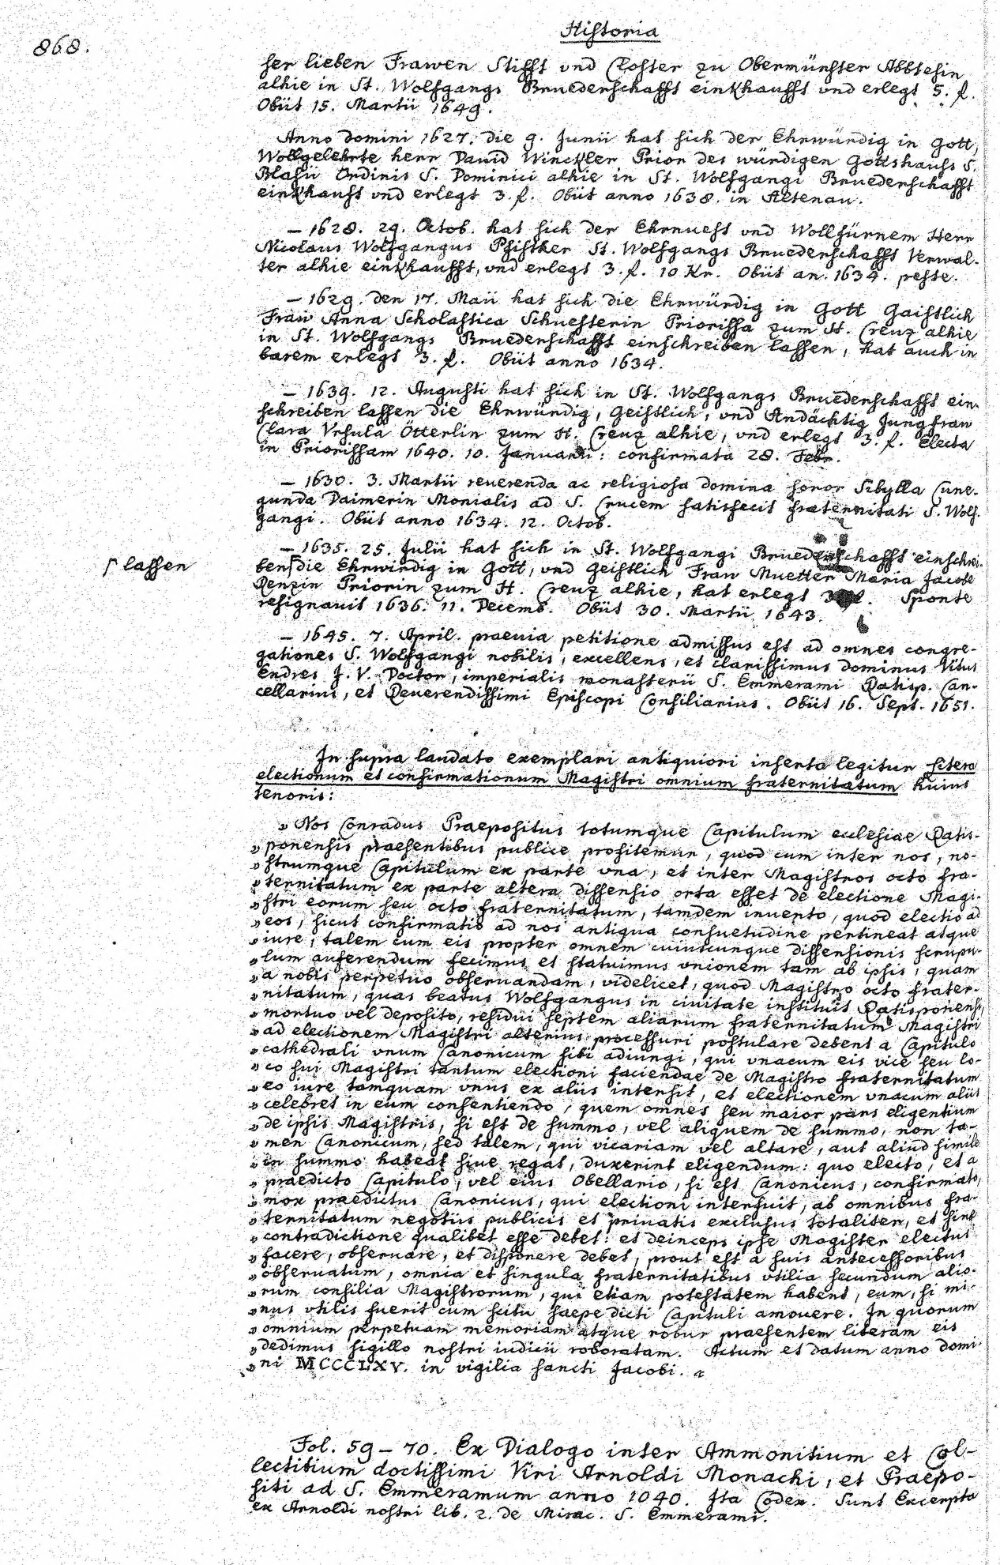 868.
Historia
ser lieben Frawen Stifft vnd Closter zu Obermünster Abbtesin
alhie in St. Wolfgangs Bruederschafft einkhaufft vnd erlegt 5. f.
Obiit 15. Martii 1649.
Anno domini 1627. die 9. Junii hat sich der Ehrwürdig in Gott,
Wollgelehrte herr Dauid Winckler Prior des würdigen Gottshauss S.
Blasii Ordinis S. Dominici alhie in St. Wolfgangi Bruederschafft
einkhauft vnd erlegt 3. f. Obiit anno 1638. in Altenau.
— 1628. 29. Octob. hat sich der Ehrnuest vnd Wollfürnem Herr
Nicolaus Wolfgangus Pfister St. Wolfgangs Bruederschafft Verwal-
ter alhie einkhaufft, vnd erlegt 3. f. 10 Kr. Obiit an. 1634. peste.
— 1629. den 17. Maii hat sich die Ehrwürdig in Gott Gaistlich
Fraw Anna Scholastica Schuesterin Priorissa zum H. Creuz alhie
in St. Wolfgangs Bruederschafft einschreiben lassen, hat auch in
barem erlegt 3. f. Obiit anno 1634.
— 1639. 12. Augusti hat sich in St. Wolfgangs Bruederschafft ein-
schreiben lassen die Ehrwürdig, Geistlich, vnd Andächtig Jungfraw
Clara Vrsula Ötterlin zum H. Creuz alhie, vnd erlegt 3. f. Electa
in Priorissam 1640. 10. Januarii: confirmata 28. Febr.
— 1630. 3. Martii reuerenda ac religiosa domina soror Sibylla Cune-
gunda Daimerin Monialis ad S. Crucem satisfecit fraternitati S. Wolf-
gangi. Obiit anno 1634. 12. Octob.
— 1635. 25. Julii hat sich in St. Wolfgangi Bruederschafft einschrei-
ben ſ die Ehrwürdig in Gott, vnd Geistlich Fraw Muetter Maria Jacobe
ſ lassen
Renzin Priorin zum H. Creuz alhie, hat erlegt 3 f. Sponte
resignauit 1636. 11. Decemb. Obiit 30. Martii 1643.
— 1645. 7. April. praeuia petitione admissus est ad omnes congre-
gationes S. Wolfgangi nobilis, excellens, et clarissimus dominus Vitus
Endres J. V. Doctor, imperialis monasterii S. Emmerami Ratisp. Can-
cellarius, et Reuerendissimi Episcopi Consiliarius. Obiit 16. Sept. 1651.
In supra laudato exemplari antiquiori inserta legitur litera
electionum et confirmationum Magistri omnium fraternitatum huius
tenoris:
„ Nos Conradus Praepositus totumque Capitulum ecclesiae Ratis-
„ ponensis praesentibus publice profitemur, quod cum inter nos, no-
„ strumque Capitulum ex parte vna, et inter Magistros octo fra-
„ ternitatum ex parte altera dissensio orta esset de electione Magi-
„ stri eorum seu octo fraternitatum, tamdem inuento, quod electio ad
„ eos, sicut confirmatio ad nos antiqua consuetudine pertineat atque
„ iure, talem cum eis propter omnem cuiuscunque dissensionis scrupu-
„ lum auferendum fecimus et statuimus vnionem tam ab ipsis, quam
„ a nobis perpetuo obseruandam, videlicet, quod Magistro octo frater-
„ nitatum, quas beatus Wolfgangus in ciuitate instituit Ratisponensi,
„ mortuo vel deposito, residui septem aliarum fraternitatum Magistri
„ ad electionem Magistri alterius processuri postulare debent a Capitulo
„ cathedrali vnum Canonicum sibi adiungi, qui vnacum eis vice seu lo-
„ co sui Magistri tantum electioni faciendae de Magistro fraternitatum
„ eo iure tamquam vnus ex aliis intersit, et electionem vnacum aliis
„ celebret in eum consentiendo, quem omnes seu maior pars eligentium
„ de ipsis Magistris, si est de summo, vel aliquem de summo, non ta-
„ men Canonicum, sed talem, qui vicariam vel altare, aut aliud simile
„ in summo habeat siue regat, duxerint eligendum: quo electo, et a
„ praedicto Capitulo, vel eius Obellario, si est Canonicus, confirmato,
„ mox praedictus Canonicus, qui electioni interfuit, ab omnibus fra-
„ ternitatum negotiis publicis et priuatis exclusus totaliter, et sine
„ contradictione qualibet esse debet: et deinceps ipse Magister electus
„ facere, obseruare, et disponere debet, prout est a suis antecessoribus
„ obseruatum, omnia et singula fraternitatibus vtilia secundum alio-
„ rum consilia Magistrorum, qui etiam potestatem habent, eum, si mi-
„ nus vtilis fuerit cum scitu saepe dicti Capituli amouere. In quorum
„ omnium perpetuam memoriam atque robur praesentem literam eis
„ dedimus sigillo nostri iudicii roboratam. Actum et datum anno domi-
„ ni MCCCLXV. in vigilia sancti Jacobi. “
Fol. 59 – 70. Ex Dialogo inter Ammonitium et Col-
lectitium doctissimi Viri Arnoldi Monachi, et Praepo-
siti ad S. Emmeramum anno 1040. Ita Codex. Sunt Excerpta
ex Arnoldi nostri lib. 2. de Mirac. S. Emmerami.